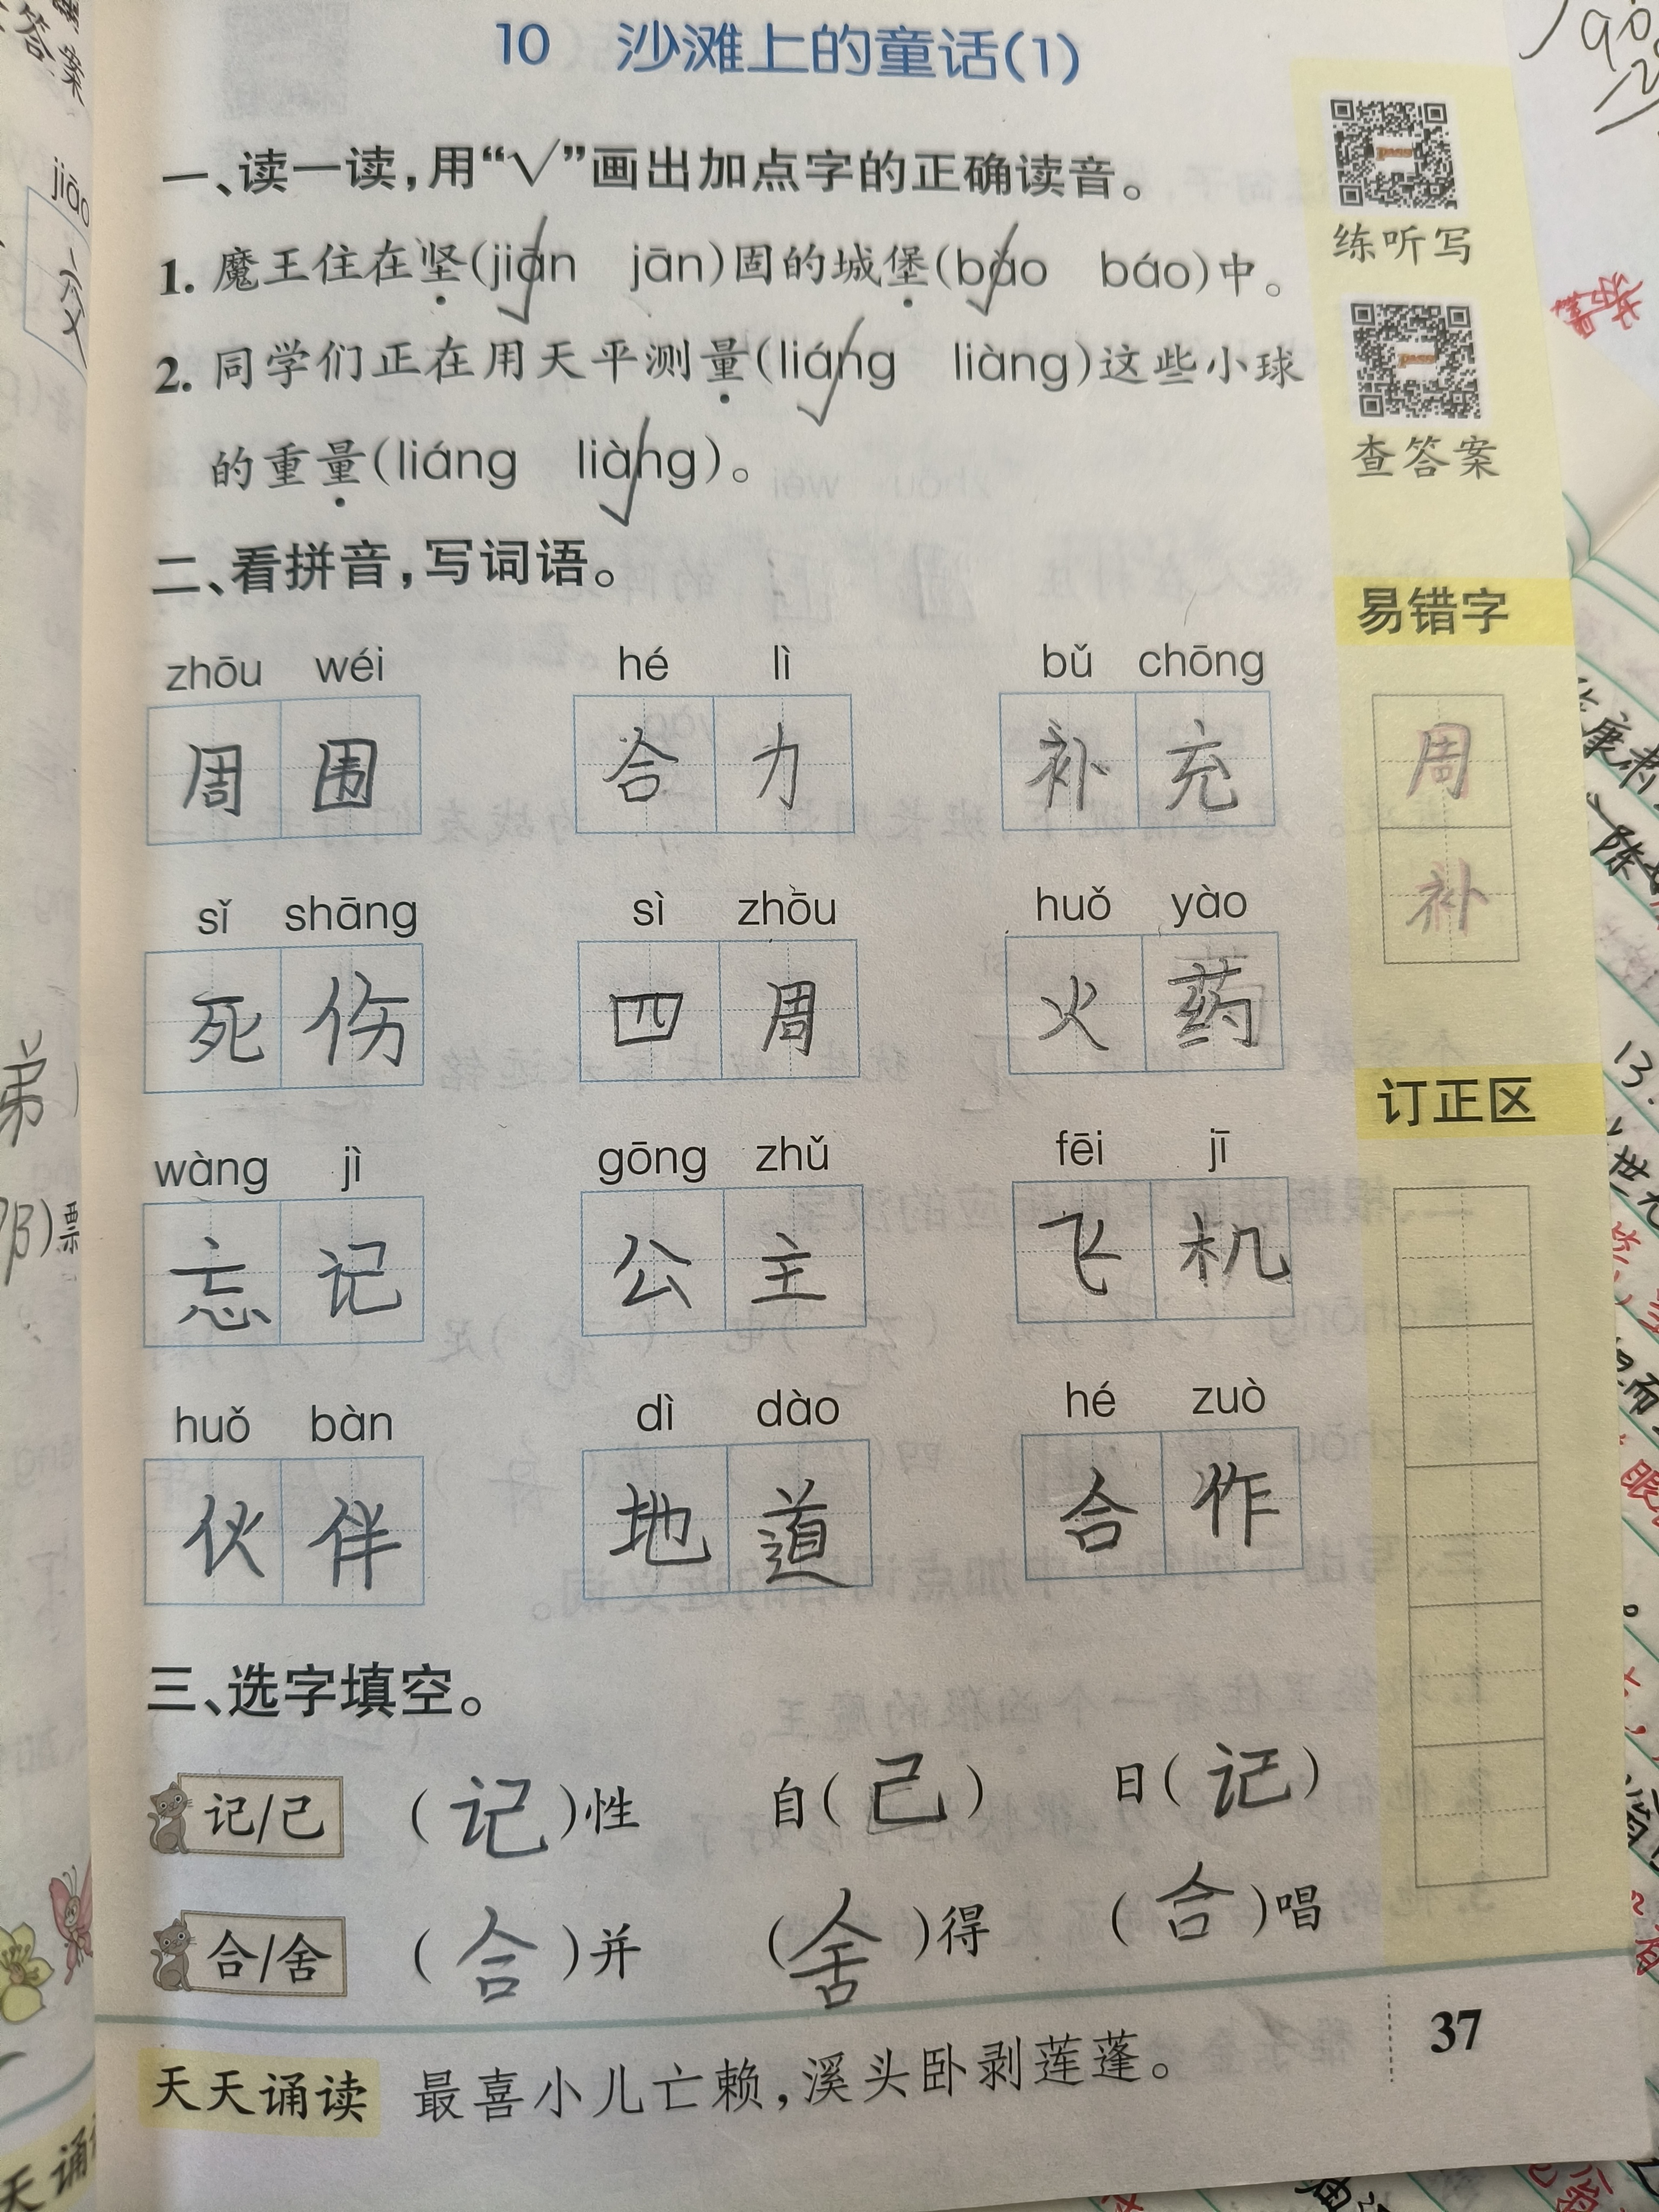 10 沙滩上的童话(1)
一、读一读,用“√”画出加点字的正确读音。
1. 魔王住在坚(jiān jān)固的城堡(bǎo báo)中。
2. 同学们正在用天平测量(liáng liàng)这些小球
的重量(liáng liàng)。
练听写
查答案
二、看拼音,写词语。
zhōu wéi hé lì bǔ chōng
周围 合力 补充
sǐ shāng sì zhōu huǒ yào
死伤 四周 火药
wàng jì gōng zhǔ fēi jī
忘记 公主 飞机
huǒ bàn dì dào hé zuò
伙伴 地道 合作
易错字
周
补
订正区
三、选字填空。
记/己 (记)性 自(己) 日(记)
合/舍 (合)并 (舍)得 (合)唱
37
天天诵读 最喜小儿亡赖,溪头卧剥莲蓬。